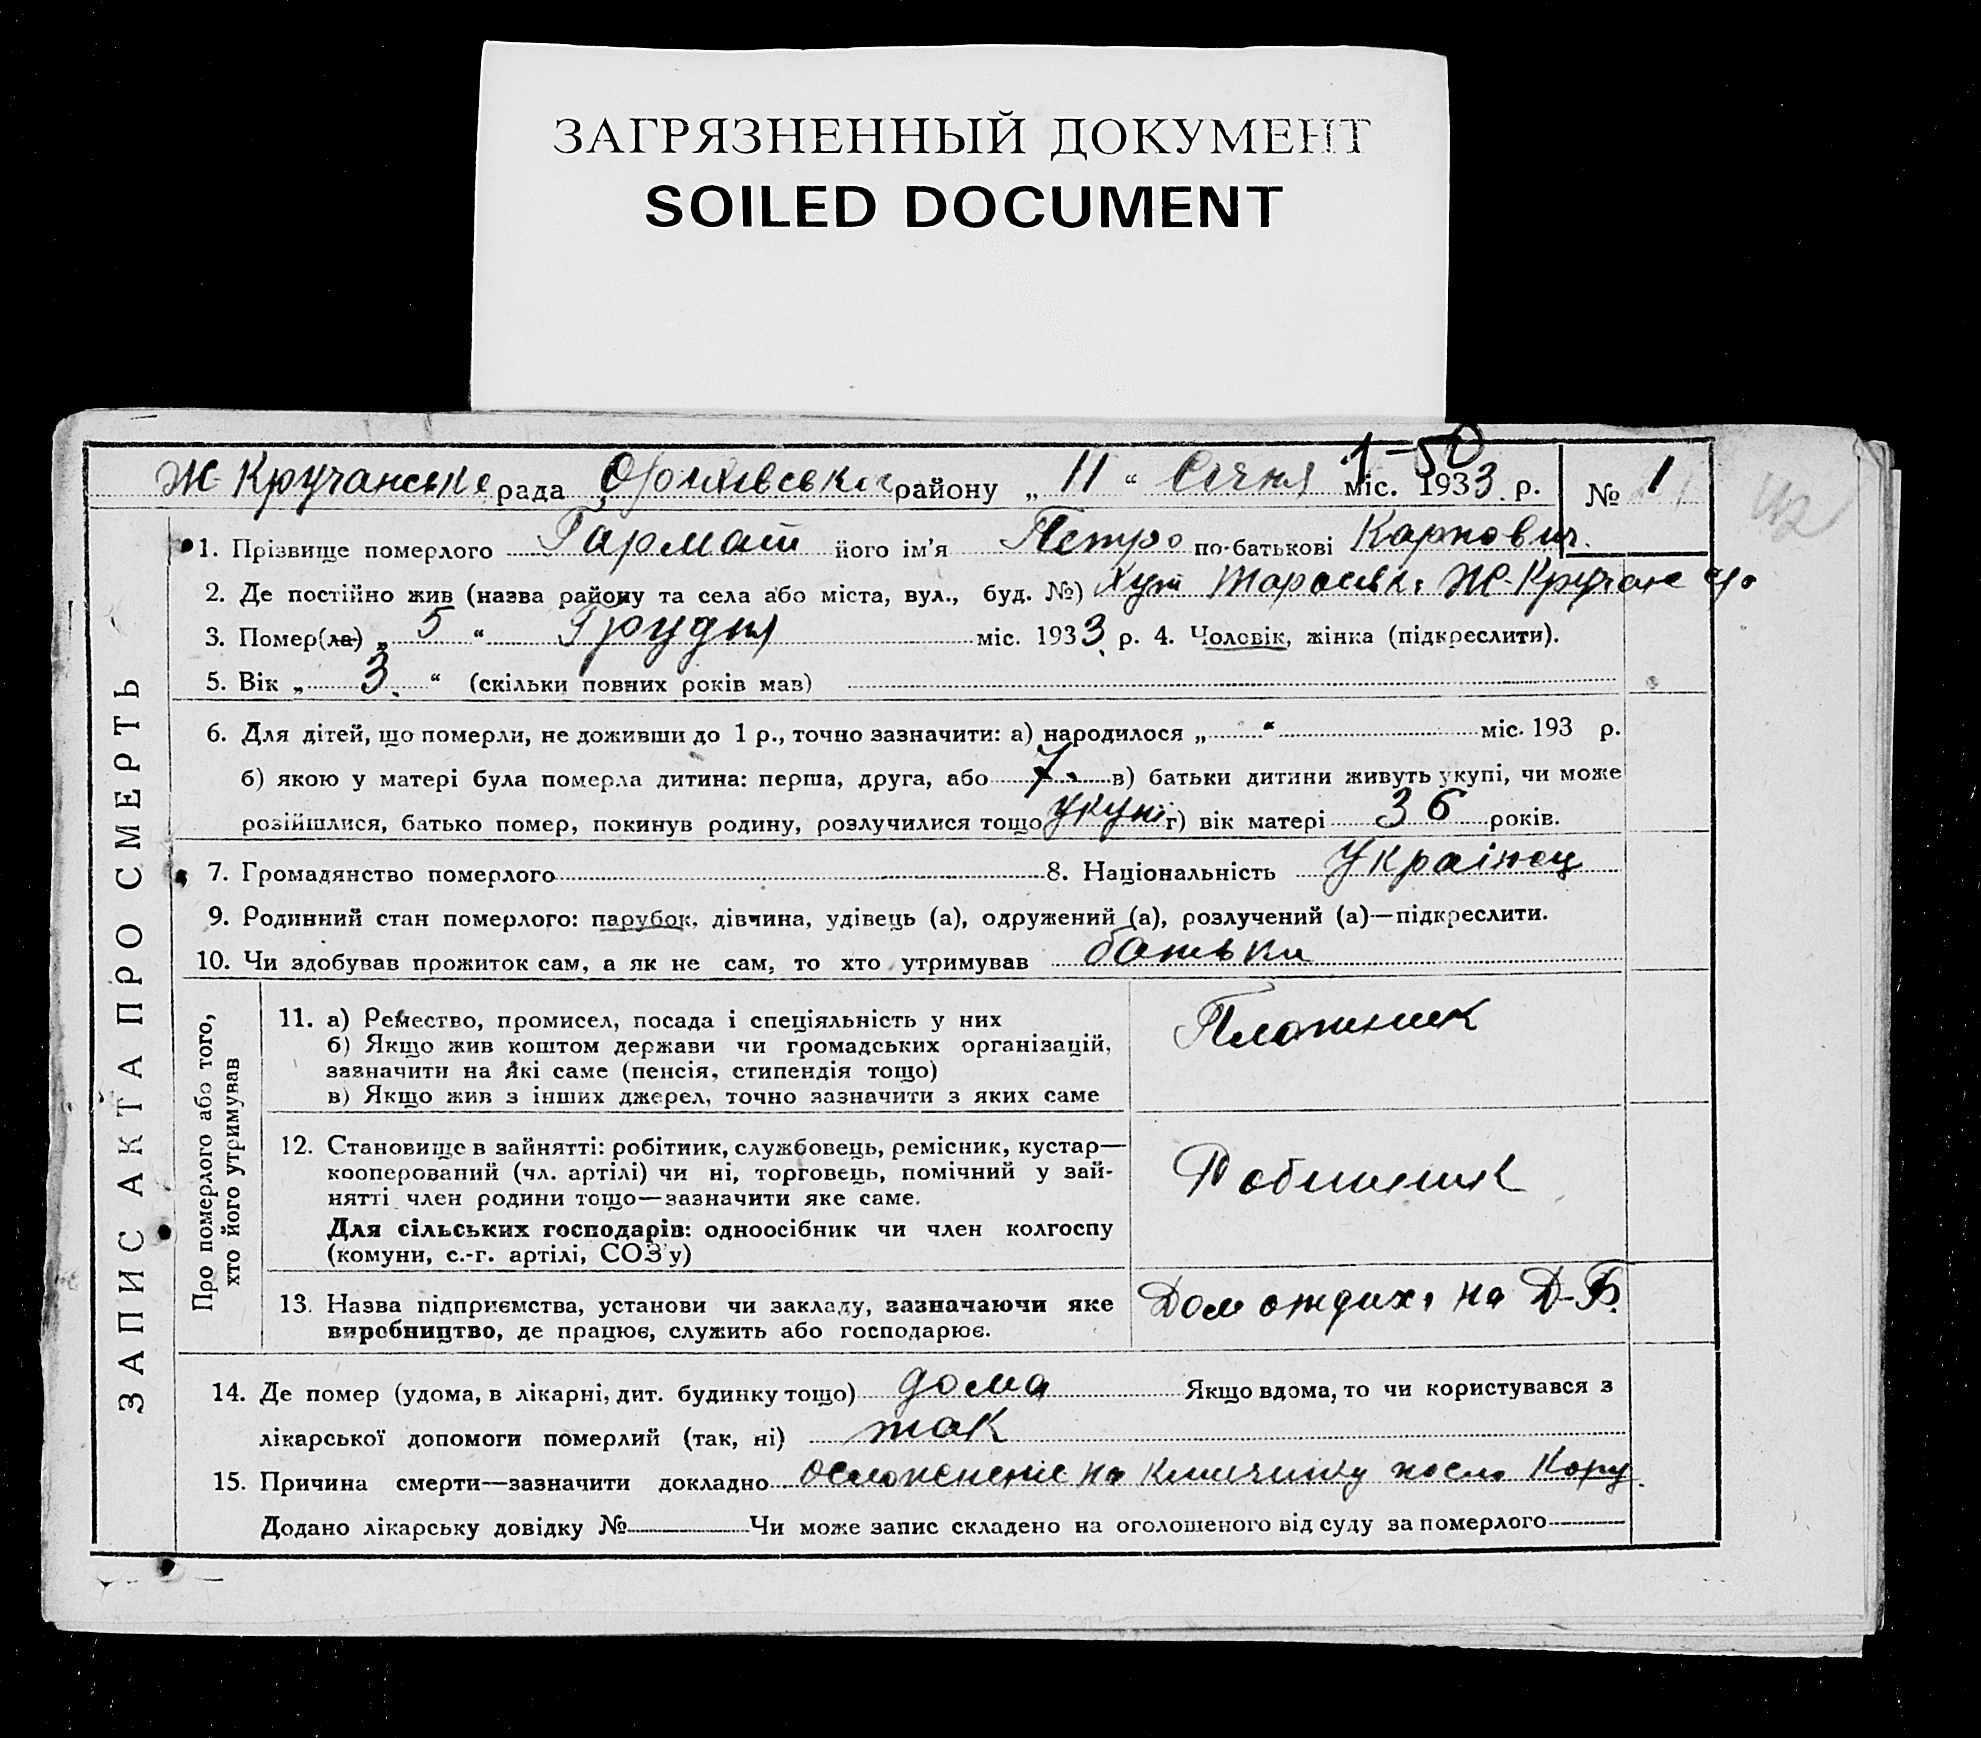 ЗАГРЯЗНЕННЫЙ ДОКУМЕНТ
SOILED DOCUMENT
1-50
Ж-Кручанська рада Оріхівська району „ 11 “ Січня міс. 1933 р. № 1
1. Прізвище померлого Гармат його ім’я Петро по-батькові Карпович.
2. Де постійно жив (назва району та села або міста, вул., буд. №) Хут Тарасівка Ж-Кручанс
3. Помер(ла) „ 5 “ Грудня міс. 1933 р. 4. Чоловік, жінка (підкреслити).
5. Вік „ 3. “ (скільки повних років мав)
6. Для дітей, що померли, не доживши до 1 р., точно зазначити: а) народилося „ “ міс. 193 р.
б) якою у матері була померла дитина: перша, друга, або 7. в) батьки дитини живуть укупі, чи може
розійшлися, батько помер, покинув родину, розлучилися тощо укупі г) вік матері 36 років.
7. Громадянство померлого 8. Національність Українец
9. Родинний стан померлого: парубок, дівчина, удівець (а), одружений (а), розлучений (а)—підкреслити.
10. Чи здобував прожиток сам, а як не сам, то хто утримував батьки
ЗАПИС АКТА ПРО СМЕРТЬ
Про померлого або того,
хто його утримував
11. а) Ремество, промисел, посада і спеціяльність у них
б) Якщо жив коштом держави чи громадських організацій,
зазначити на які саме (пенсія, стипендія тощо)
в) Якщо жив з інших джерел, точно зазначити з яких саме
Плотник
12. Становище в зайнятті: робітник, службовець, ремісник, кустар—
кооперований (чл. артілі) чи ні, торговець, помічний у зай-
нятті член родини тощо—зазначити яке саме.
Для сільських господарів: одноосібник чи член колгоспу
(комуни, с.-г. артілі, СОЗ’у)
Робитник
13. Назва підприємства, установи чи закладу, зазначаючи яке
виробництво, де працює, служить або господарює.
Дом отдиха на Д-Б.
14. Де помер (удома, в лікарні, дит. будинку тощо) дома Якщо вдома, то чи користувався з
лікарської допомоги померлий (так, ні) так
15. Причина смерти—зазначити докладно осложнение на кишечнику после Кору.
Додано лікарську довідку № Чи може запис складено на оголошеного від суду за померлого